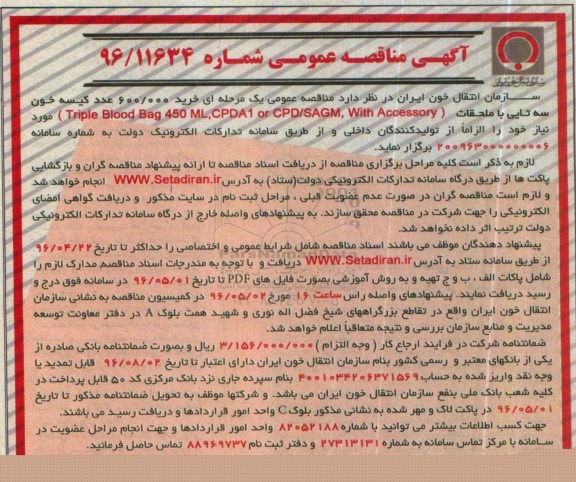 آگهی مناقصه عمومی شماره ۹۶/۱۱۶۳۴
سازمان انتقال خون ایران در نظر دارد مناقصه عمومی یک مرحله ای خرید ۶۰۰/۰۰۰ عدد کیسه خون
سه تایی با ملحقات ( Triple Blood Bag 450 ML,CPDA1 or CPD/SAGM, With Accessory ) مورد
نیاز خود را الزاماً از تولیدکنندگان داخلی و از طریق سامانه تدارکات الکترونیک دولت به شماره سامانه
۲۰۰۹۶۳۰۰۰۰۰۰۰۶ برگزار نماید.
لازم به ذکر است کلیه مراحل برگزاری مناقصه از دریافت اسناد مناقصه تا ارائه پیشنهاد مناقصه گران و بازگشایی
پاکت ها از طریق درگاه سامانه تدارکات الکترونیکی دولت(ستاد) به آدرس WWW.Setadiran.ir انجام خواهد شد
و لازم است مناقصه گران در صورت عدم عضویت قبلی ، مراحل ثبت نام در سایت مذکور و دریافت گواهی امضای
الکترونیکی را جهت شرکت در مناقصه محقق سازند. به پیشنهادهای واصله خارج از درگاه سامانه تدارکات الکترونیکی
دولت ترتیب اثر داده نخواهد شد.
پیشنهاد دهندگان موظف می باشند اسناد مناقصه شامل شرایط عمومی و اختصاصی را حداکثر تا تاریخ ۹۶/۰۴/۲۲
از طریق سامانه ستاد به آدرس WWW.Setadiran.ir دریافت و با توجه به مندرجات اسناد مناقصه مدارک لازم را
شامل پاکات الف ، ب و ج تهیه و به روش آموزشی بصورت فایل های PDF تا تاریخ ۹۶/۰۵/۰۱ در سامانه فوق درج و
رسید دریافت نمایند. پیشنهادهای واصله راس ساعت ۱۶ مورخ ۹۶/۰۵/۰۲ در کمیسیون مناقصه به نشانی سازمان
انتقال خون ایران واقع در تقاطع بزرگراههای شیخ فضل اله نوری و شهید همت بلوک A در دفتر معاونت توسعه
مدیریت و منابع سازمان بررسی و نتیجه متعاقباً اعلام خواهد شد.
ضمانتنامه شرکت در فرایند ارجاع کار ( وجه التزام ) ۳/۱۵۶/۰۰۰/۰۰۰ ریال و بصورت ضمانتنامه بانکی صادره از
یکی از بانکهای معتبر و رسمی کشور بنام سازمان انتقال خون ایران دارای اعتبار تا تاریخ ۹۶/۰۸/۰۲ قابل تمدید یا
وجه نقد واریز شده به حساب ۴۰۰۱۰۳۴۲۰۶۳۷۱۵۶۹ بنام سپرده جاری نزد بانک مرکزی کد ۵۰ قابل پرداخت در
کلیه شعب بانک ملی بنفع سازمان انتقال خون ایران می باشد. و شرکتها موظف به تحویل ضمانتنامه مذکور تا تاریخ
۹۶/۰۵/۰۱ در پاکت لاک و مهر شده به نشانی مذکور بلوک C واحد امور قراردادها و دریافت رسید می باشند.
جهت کسب اطلاعات بیشتر می توانید با شماره ۸۲۰۵۲۱۸۸ واحد امور قراردادها و جهت انجام مراحل عضویت در
سامانه با مرکز تماس سامانه به شماره ۲۷۳۱۳۱۳۱ و دفتر ثبت نام ۸۸۹۶۹۷۳۷ تماس حاصل فرمائید.